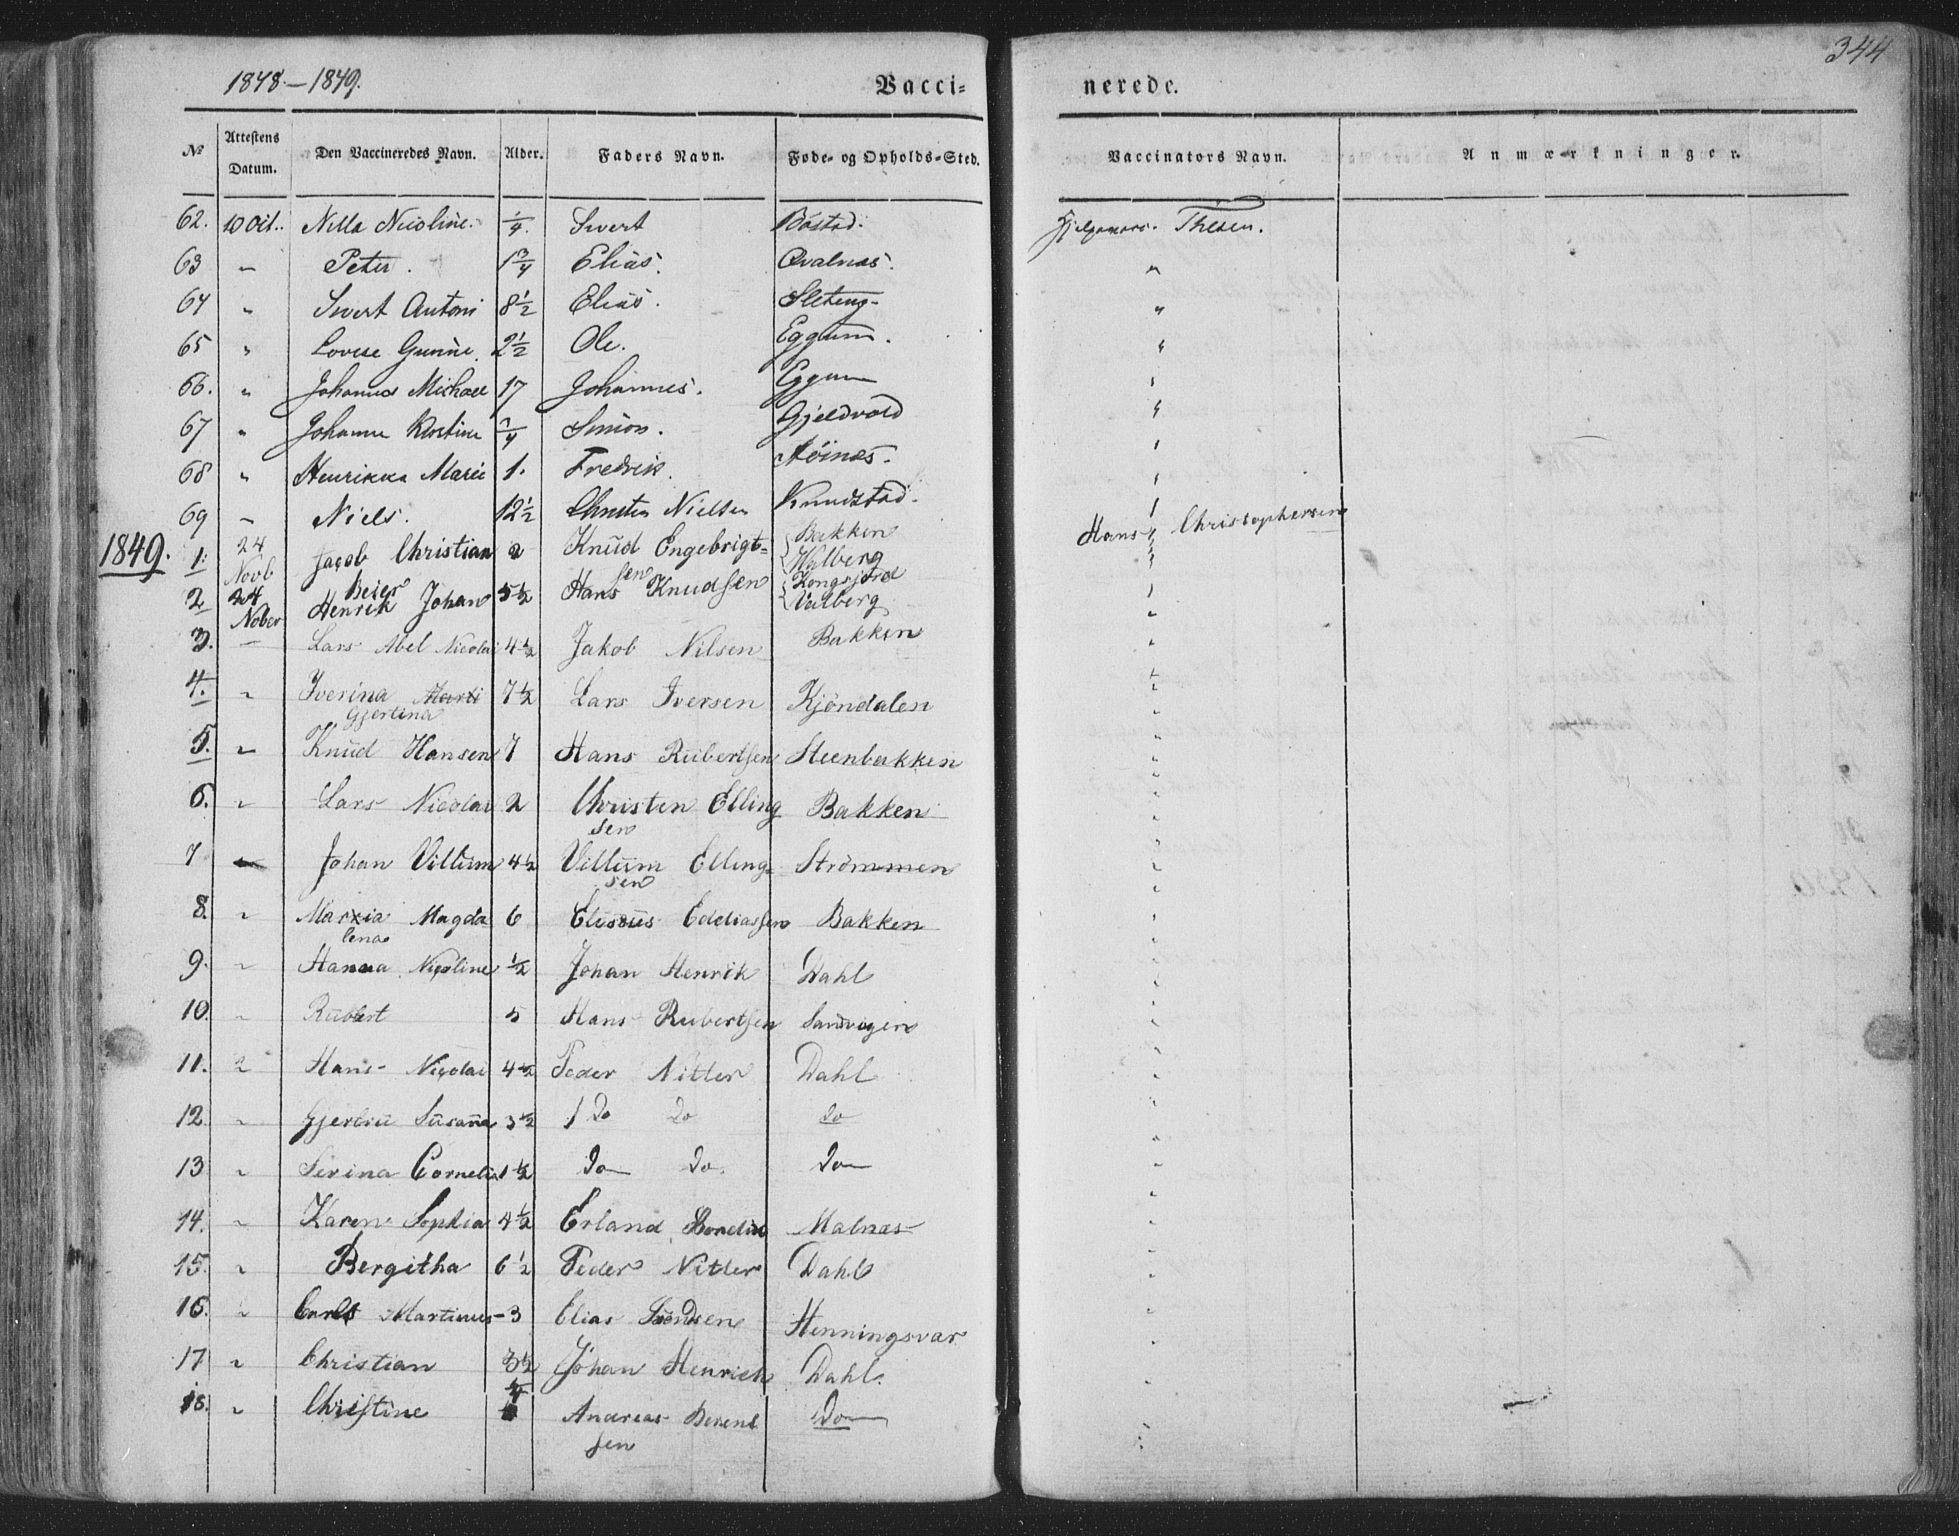 344
1848.–1849.
Vacci= nerede.
No Attestens Datum. Den Vaccineredes Navn. Alder. Faders Navn. Føde- og Opholds-Sted. Vaccinators Navn. Anmærkninger.
62. 10 Oct.. Nilla Nicoline. 1/4. Sivert Bøstad. Thesen.
63 " Peter. 1 3/4 Elias. Qvalnæs.
64 " Sivert Antoni 8 1/2 Elias.
65 " Lovise Gunine. 2 1/2 Ole. Eggum.
66. " Johannes Michael 17 Johannes. Eggum
67 " Johanne Kirstine 3/4 Simon. Gjeldvold
68 " Henrikka Marie 1. Fredrik.
69 " Niels. 12 1/2 Christen Nielsen Knudstad.
1849.
1. 24 Novb Jacob Christian Beier 2 Knud Engebrigt=sen Bakken Walberg Hans Christophersen
2 24 Nober Henrik Johan 5 1/2 Hans Knudsen Kongsjord Valberg
3. — Lars Abel Nicolai 4 1/2 Jakob Nilsen Bakken
4. " Iverina Marti Gjertina 7 1/2 Lars Iversen Kjöndalen
5. " Knud Hansen 7 Hans Rubertsen Steenbakken
6. " Lars Nicolai 2 Christen Elling sen Bakken
7 " Johan Villum 4 1/2 Villum Elling=sen Strömmen
8. " Maria Magda lena 6 Elisæus Eddiassen Bakken
9. " Hanna Nicoline 1/2 Johan Henrik Dahl
10. " Rubert 5 Hans Rubertsen Sandvigen
11. " Hans Nicolai 4 1/2 Peder Nitter Dahl
12. " Gjertru Susana 3 1/2 Do Do do
13 " Serina Cornelia 1 1/2 Do Do. Do
14. " Karen Sophia 4 1/2 Erland Malnæs
15. " Bergitha 6 1/2 Peder Nitter Dahl
16. " Carl Martinus 3 Elias Henningsvær
17 " Christian 3 1/2 Johan Henrich Dahl.
18. " Christine Andreas Berent sen Do